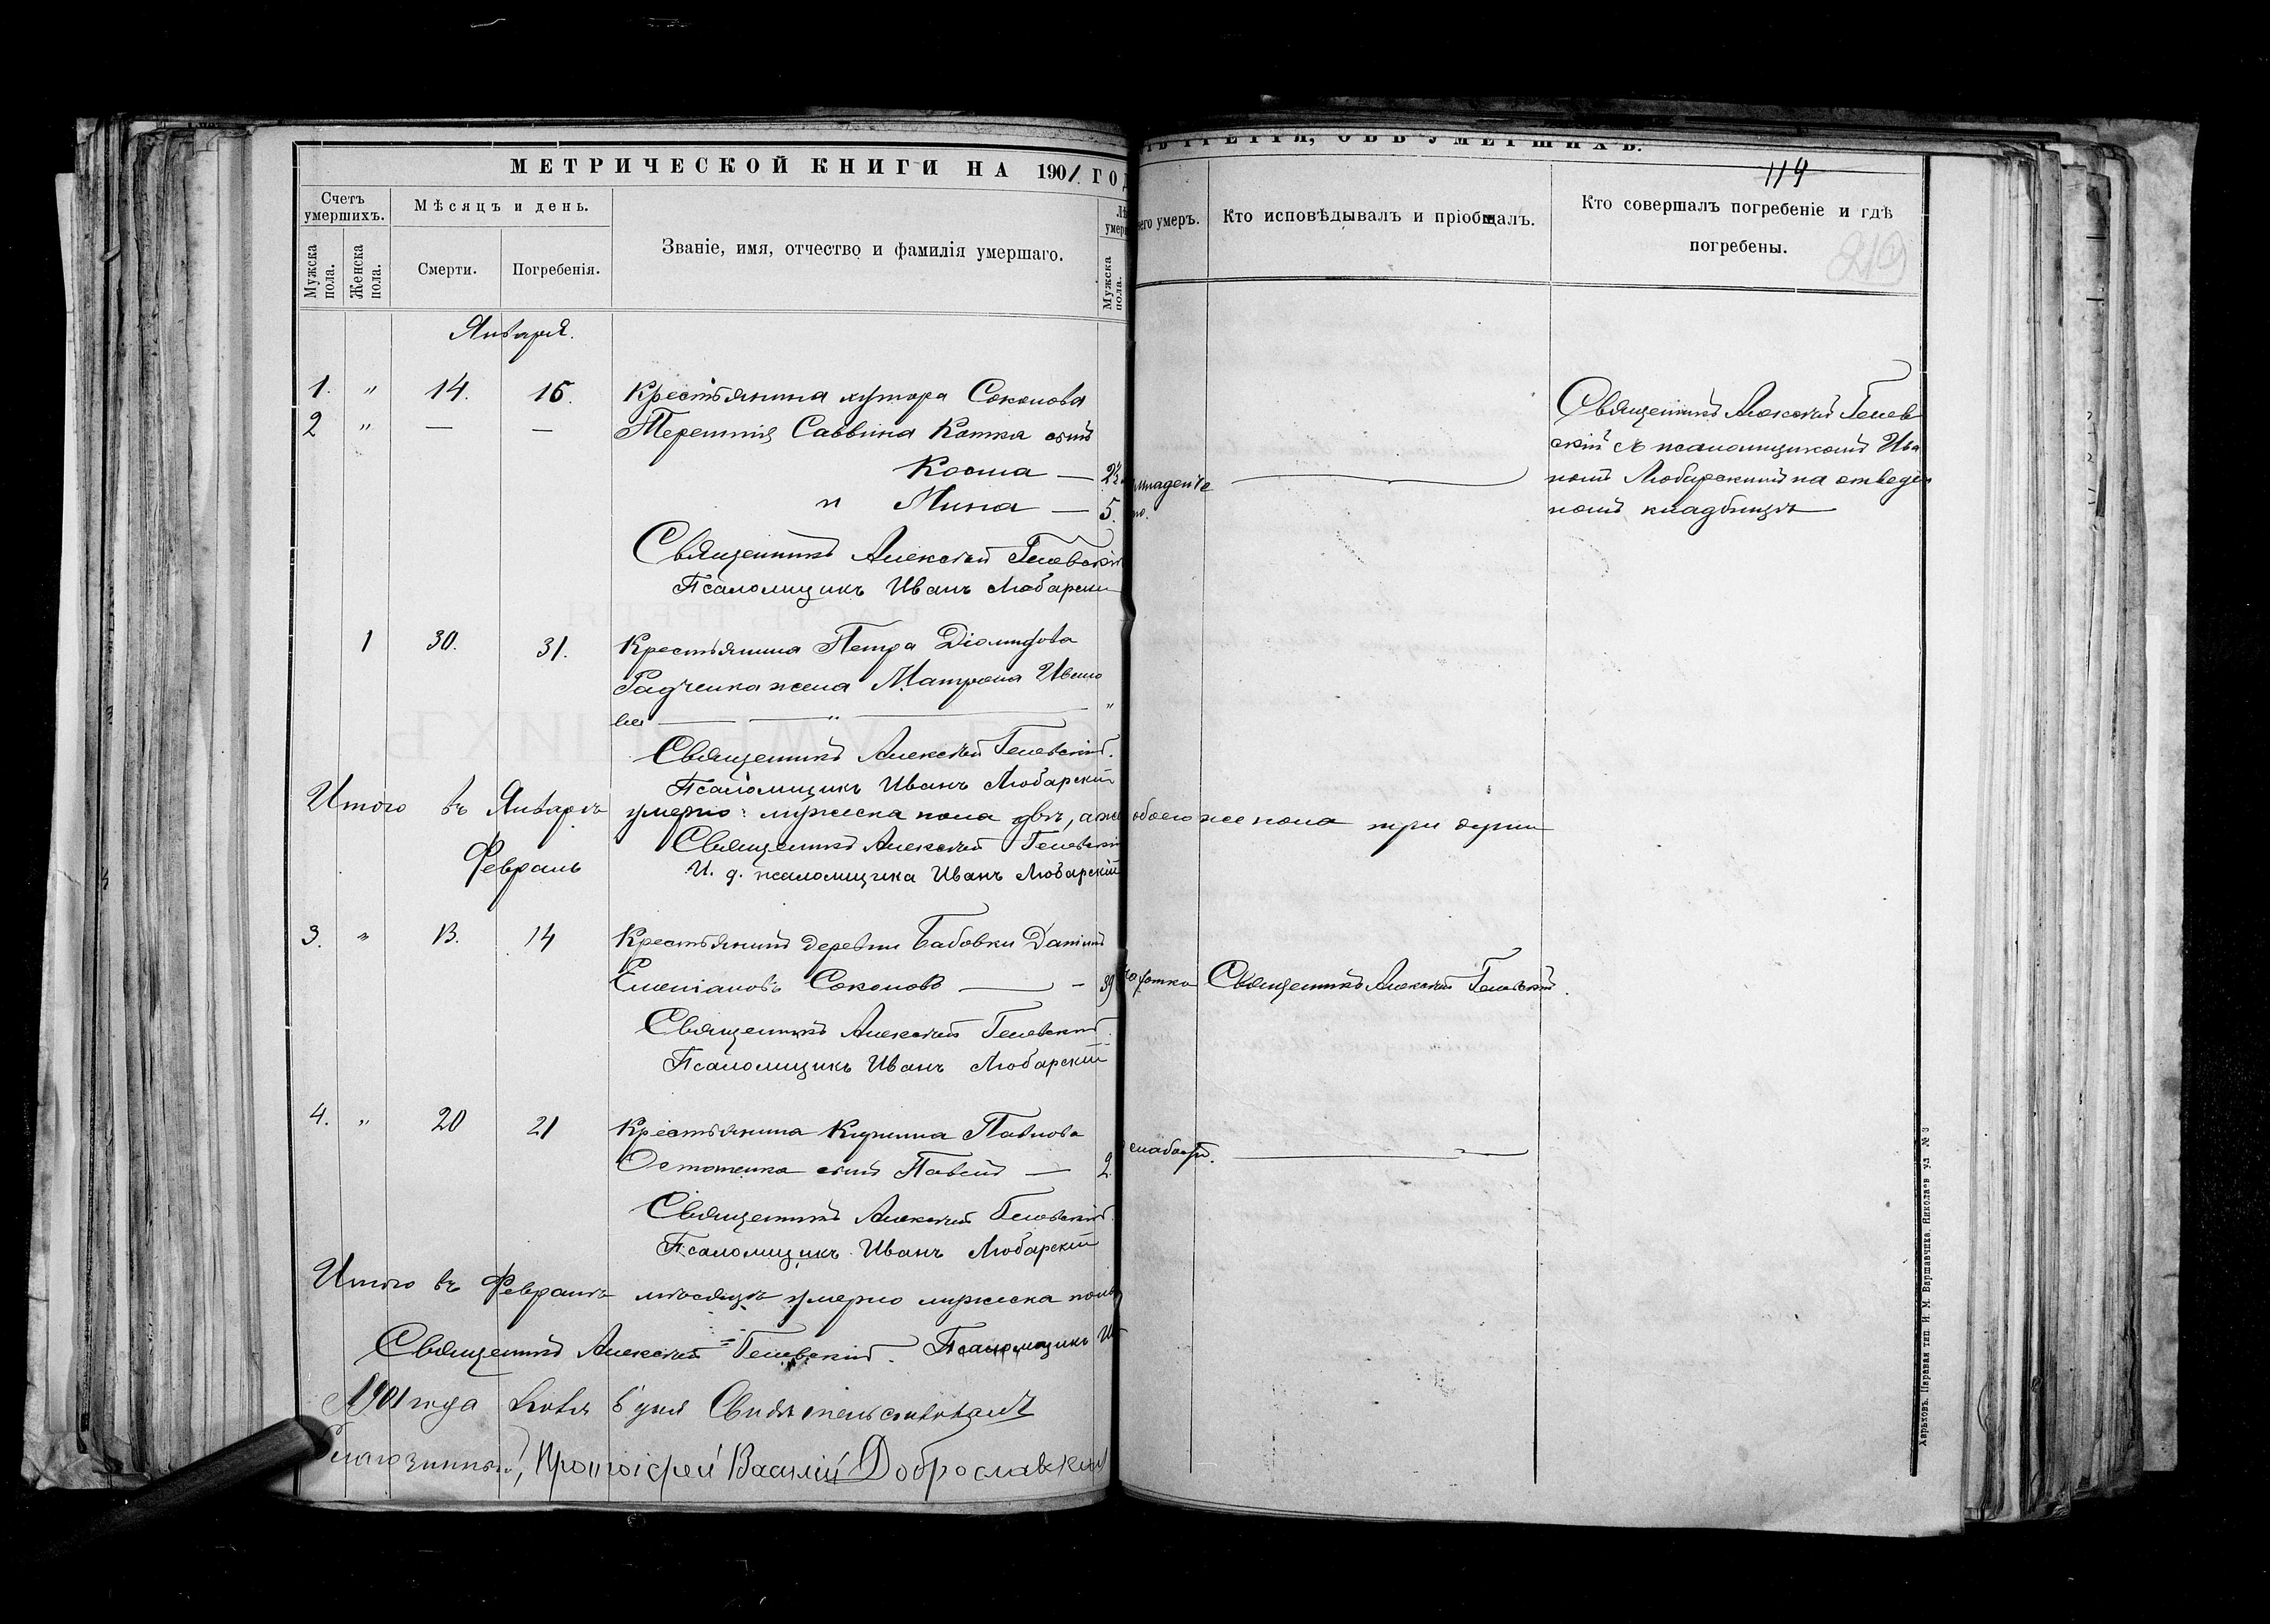 МЕТРИЧЕСКОЙ КНИГИ НА 1901 ГОД
Счетъ умершихъ.
Мужска пола.
Женска пола.
Мѣсяцъ и день.
Смерти.
Погребенія.
Званіе, имя, отчество и фамилія умершаго.
Мужска пола.
Января.
1. " 14. 16. Крестьянина хутора Соколова
2 " — — Терентія Саввина Котка сынъ
Косма — 2½
и Мина — 5.
Священникъ Алексѣй Гелевскій
Псаломщикъ Иванъ Любарскі
1 30. 31. Крестьянина Петра Діомидова
Радченка жена Матрона Ивано
ва — " — "
Священникъ Алексѣй Гелевскій.
Псаломщикъ Иванъ Любарскій
Итого въ Январѣ умерло: мужеска пола двѣ, а же
Священникъ Алексѣй Гелевскі
Февраль
И. д. псаломщика Иванъ Любарскій
3. " 13. 14 Крестьянинъ деревни Бабовки Даніилъ
Емеліановъ Соколовъ — 39
Священникъ Алексѣй Гелевскій.
Псаломщикъ Иванъ Любарскій
4. " 20 21 Крестьянина Павлова
сынъ Павелъ — 2
Священникъ Алексѣй Гелевскій.
Псаломщикъ Иванъ Любарскій
Итого въ Февралѣ мѣсяцѣ умерло мужеска пола
Священникъ Алексѣй Гелевскій. Псаломщикъ Ив
1901 года дня Свидѣтельствовалъ
Благочинный, Протоіерей Василій Доброславскій
ТРЕТІЯ, ОБЪ УМЕРШИХЪ.
119
219
его умеръ.
Кто исповѣдывалъ и пріобщалъ.
Кто совершалъ погребеніе и гдѣ
погребены.
Священникъ Алексѣй Гелев
скій съ псаломщикомъ Ива
номъ Любарскимъ на отведен
номъ кладбищѣ
обоего же пола три души
Священникъ Алексѣй Гелевскій.
слабости.
Харьковъ. Паровая тип. И. М. Варшавчика. Николаев. ул. № 3